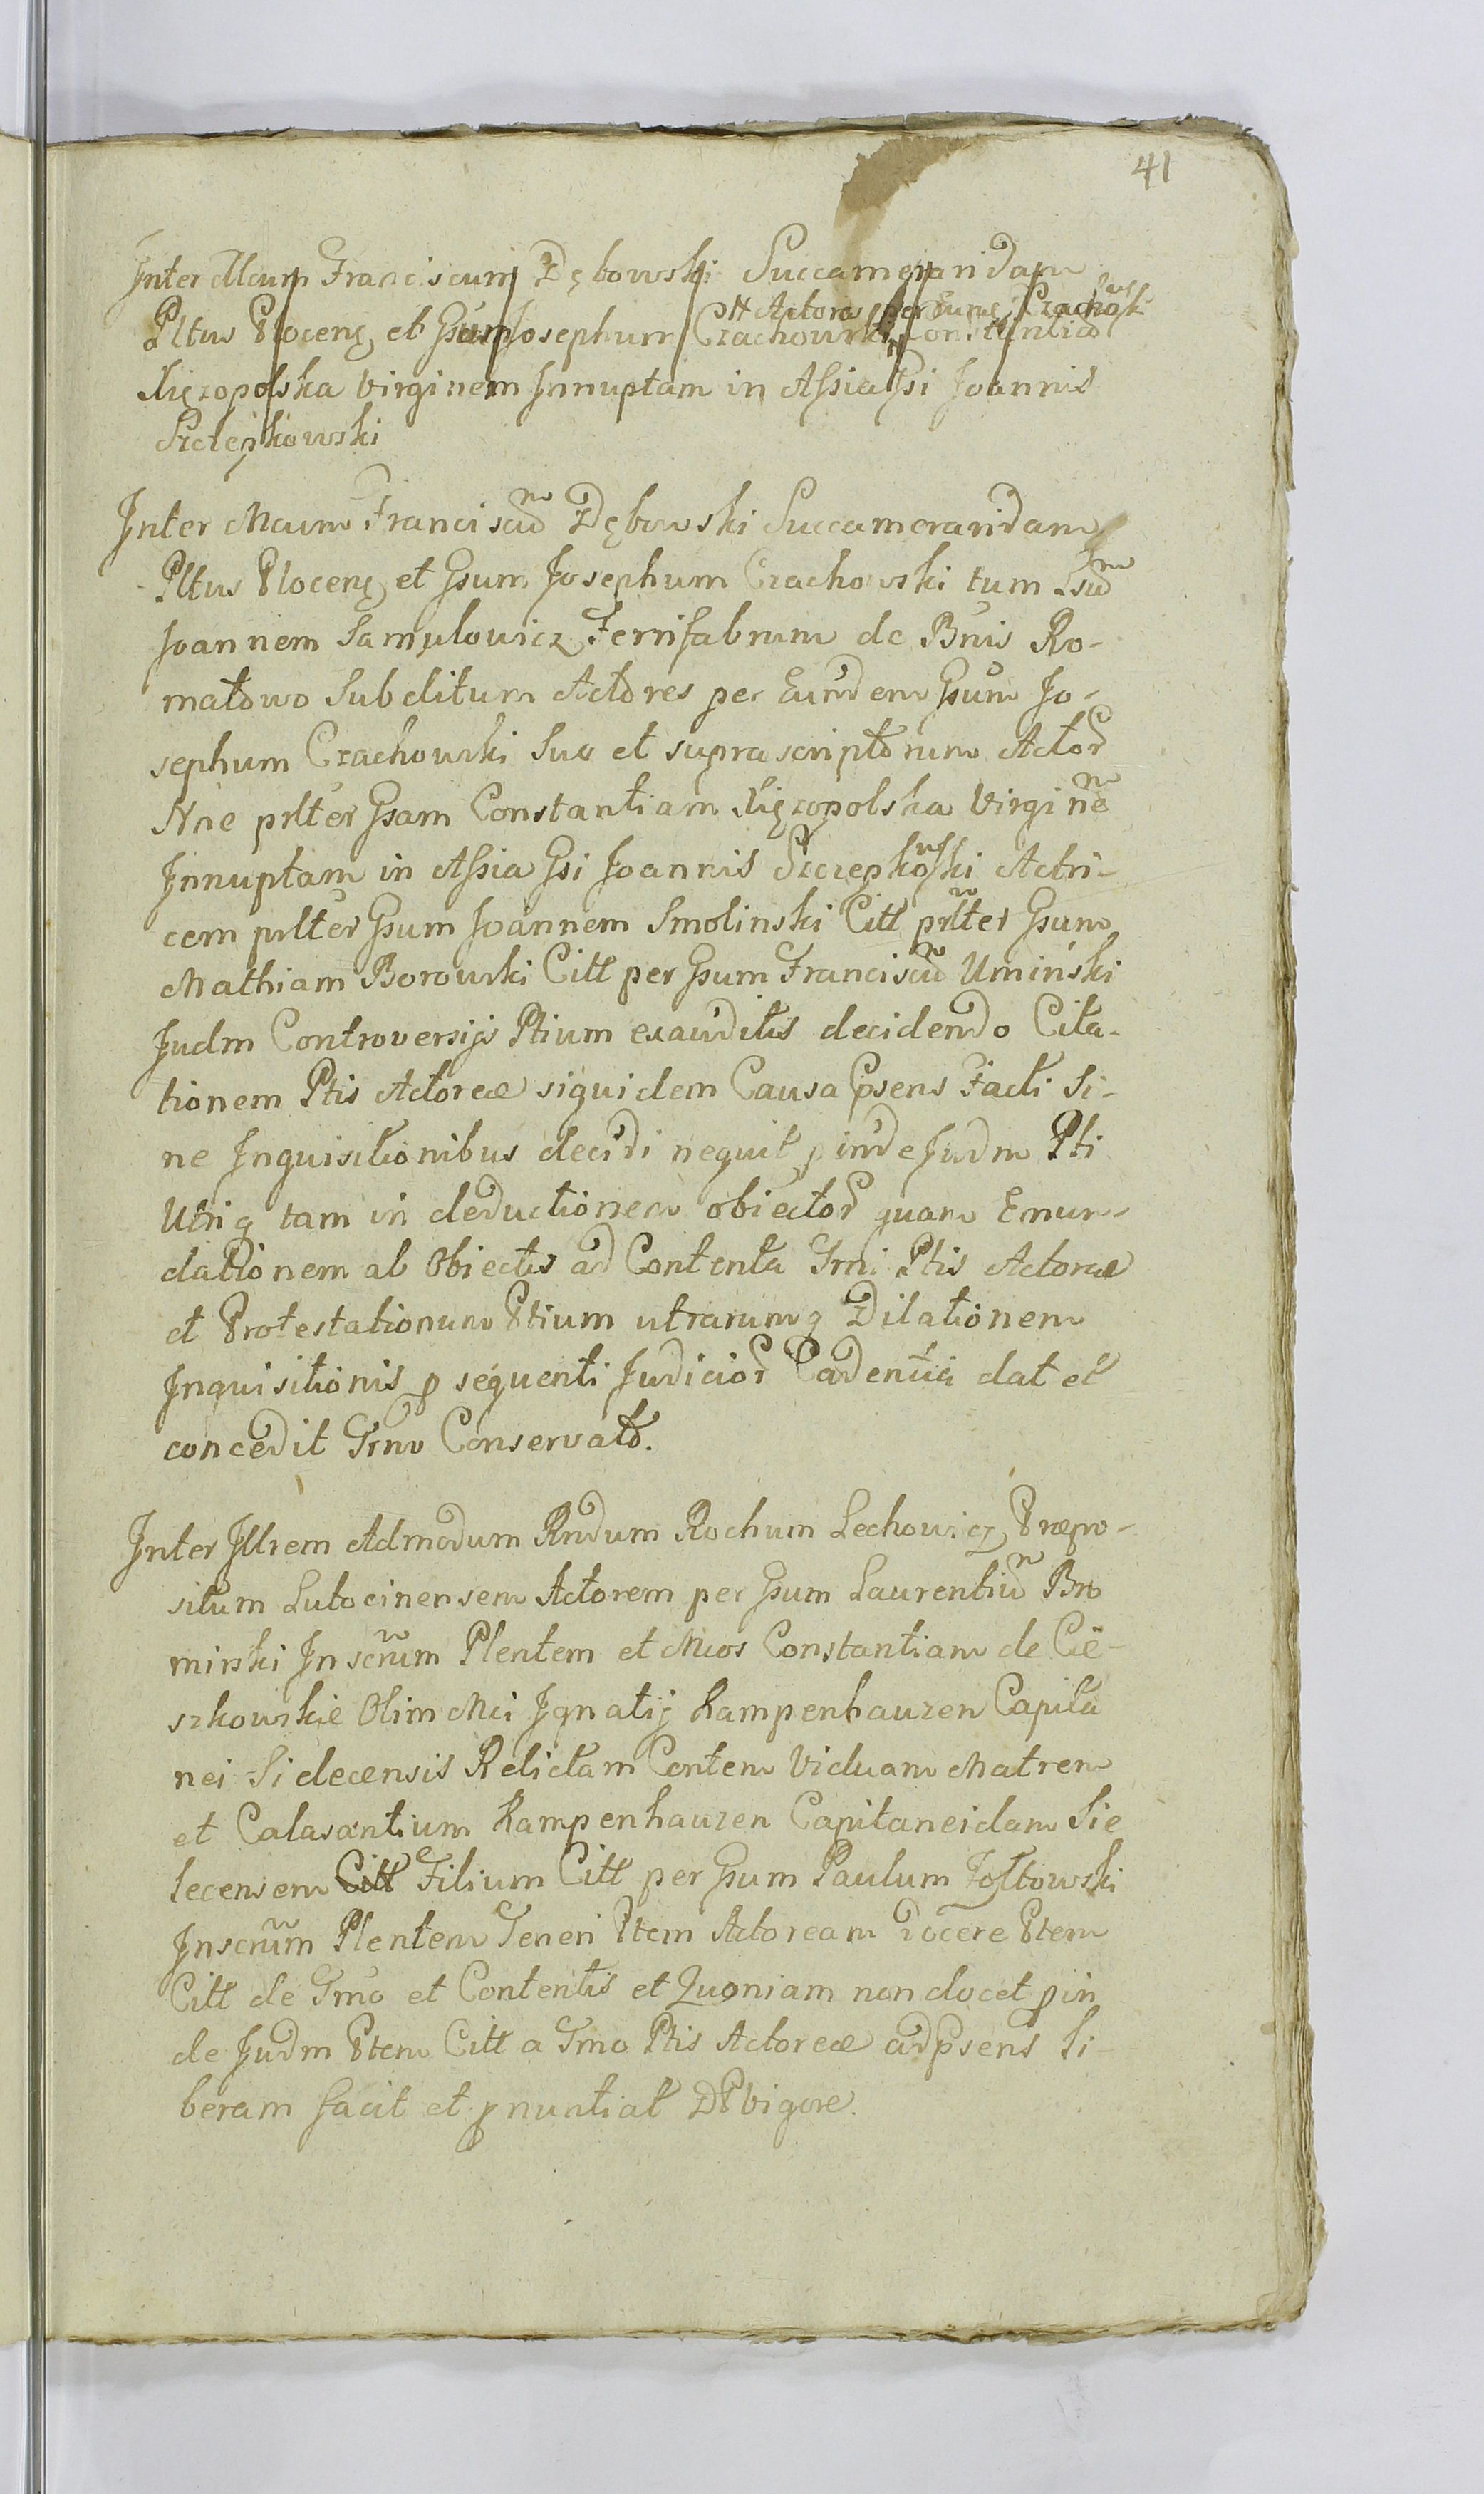 41
Inter Mcum Franciscum Dębowski Succameraridam
# Actores per Eund Czachowsk
Pltus Plocens et Gsum Josephum Czachowski # Constantiam
Xięzopolska Virginem Innuptam in Assia Gsi Joannis
Szczepkowski
Inter Mcum Franciscum Dębowski Succameraridam
Pltus Plocens et Gsum Josephum Czachowski tum
Joannem Samulowicz Ferrifabrum de Bnis Ro-
matowo Subditum Actores per Eundem Gsum Jo-
sephum Czachowski Suo et suprascriptorum Actor
Nne prlter Gsam Constantiam Xięzopolska Virgine
Innuptam in Assia Gsi Joannis Szczepkowski Actri-
cem prlter Gsum Joannem Smolinski Citt prlter Gsum
Mathiam Borowski Citt per Gsum Franciscum Uminski
Judm Controversijs Ptium exauditis decidendo Cita-
tionem Ptis Actoreæ siquidem Causa Psens Facti Si-
ne Inquisitionibus decidi nequit pinde Judm Pti
Utriq tam in deductionem obiector quam Emun-
dationem ab Obiectis ad Contenta Tmi Ptis Actoreæ
et Protestationum Ptium utrarumq Dilationem
Inquisitionis p sequenti Judicior Cadentia dat et
concedit Tmo Conservato.
Inter Illrem Admodum Rndum Rochum Lechowicz Præpo-
situm Lutocinensem Actorem per Gsum Laurentium Bro
minski Inscrum Plentem et Mcos Constantiam de Cie-
szkowskie Olim Mci Ignatij Kampenhauzen Capita
nei Sielecensis Relictam Contem Viduam Matrem
et Calasantium Kampenhauzen Capitaneidam Sie
lecensem Citt Filium Citt per Gsum Paulum Żołtowski
Inscrum Plentem Teneri Ptem Actoream docere Ptem
Citt de Tmo et Contentis et Quoniam non docet pin
de Judm Ptem Citt a Tmo Ptis Actoreæ ad Psens li-
beram facit et pnuntiat DP vigore.